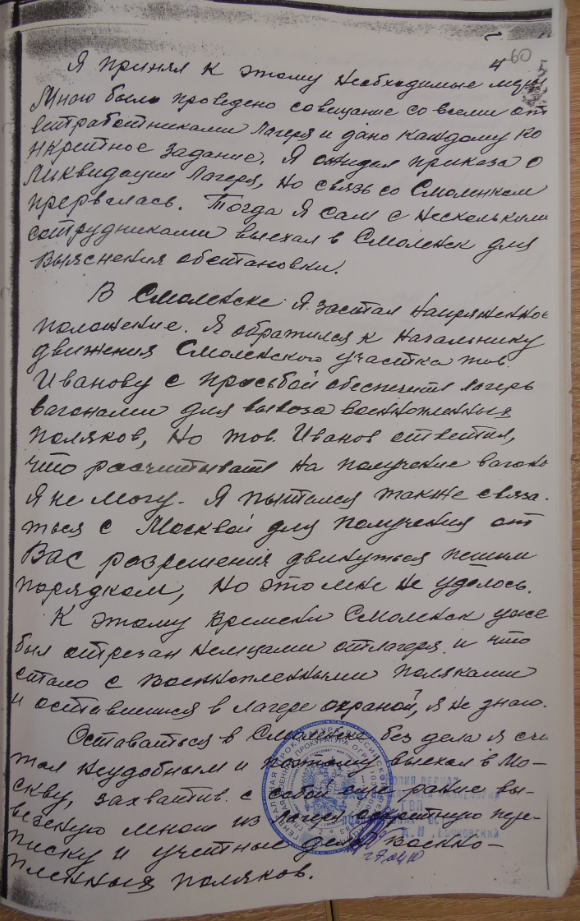 4 60
Я принял к этому необходимые меры
Мною было проведено совещание со всеми отв
ветработниками Лагеря и дано каждому ко
нкретное задание. Я ожидал приказа о
Ликвидации Лагеря, но связь со Смоленском
прервалась. Тогда Я сам с несколькими
сотрудниками выехал в Смоленск для
Выяснения обстановки.
В Смоленске Я застал напряженное
положение. Я обратился к Начальнику
движения Смоленского участка тов.
Иванову с просьбой обеспечить лагерь
вагонами для вывоза военнопленных
поляков, но тов. Иванов ответил,
что рассчитывать на получение вагонов
Я не могу. Я пытался также связа-
ться с Москвой для получения от
Вас разрешения двинуться пешим
порядком, но это мне не удалось.
К этому времени Смоленск уже
был отрезан немцами от лагеря и что
стало с военнопленными поляками
и оставшейся в лагере охраной, я не знаю.
Оставаться в Смоленске без дела я счи
тал неудобным и поэтому выехал в Мо-
скву, захватив с собой ранее вы-
везенную мною из лагеря секретную пере-
писку и учетные дела военно-
пленных поляков.